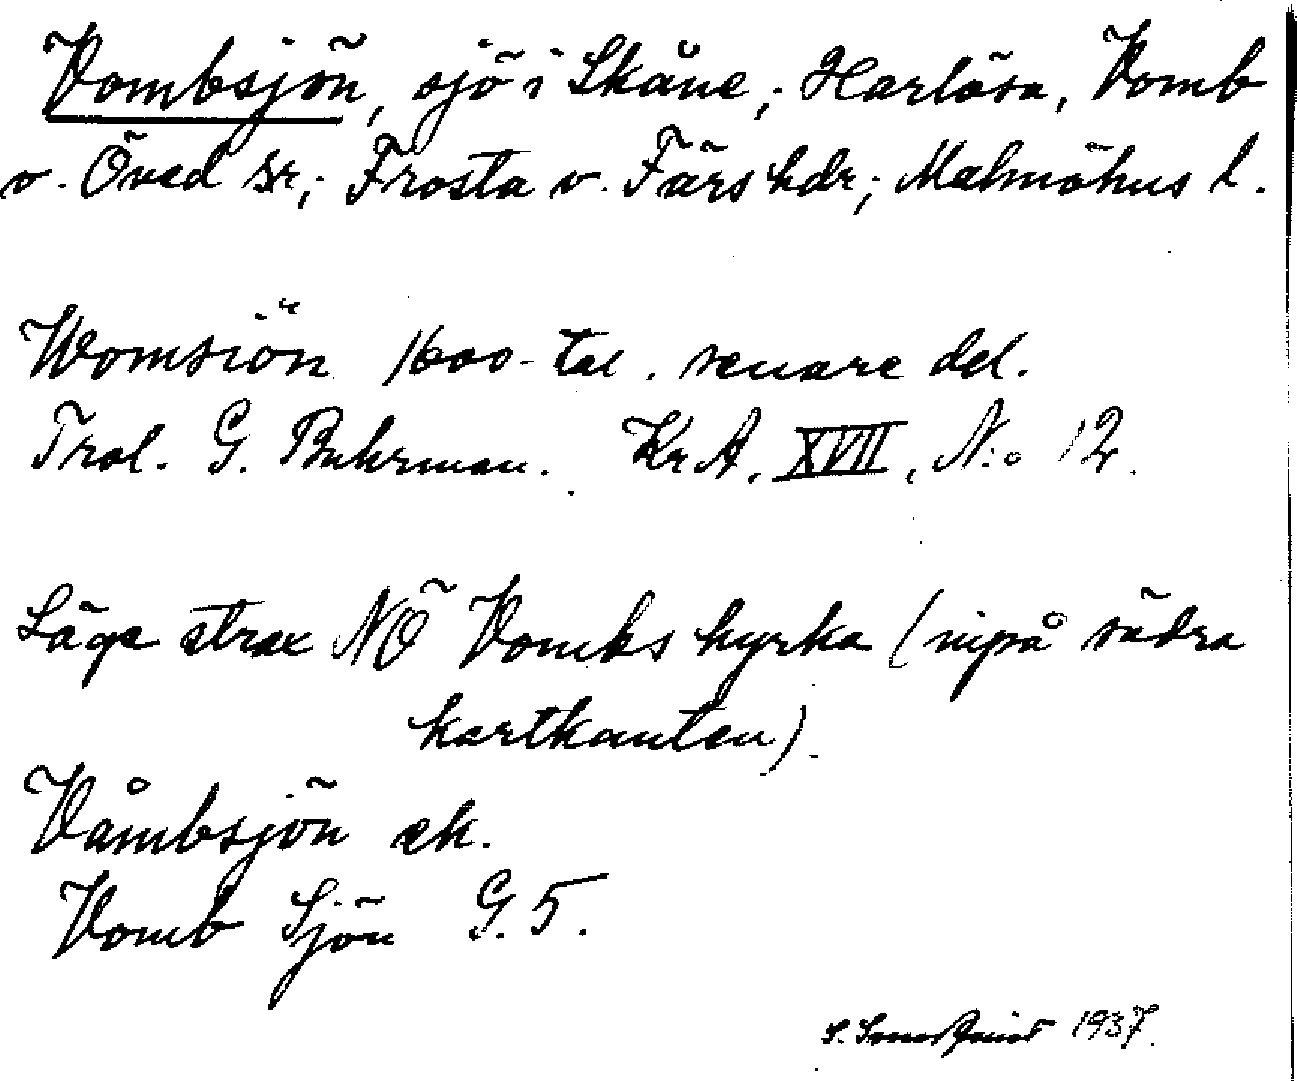 Vombsjön, sjö i Skåne; Harlösa, Vomb
o. Öved sr; Frosta o. Färs hdr; Malmöhus l.
Womsiön 1600-tal. senare del.
Trol. G. Buhrman. KrA, XVII, N:o 12.
Läge strax NÖ Vombs kyrka (nipå södra
kartkanten).
Våmbsjön ek.
Vomb Sjön G. 5.
S. 1937.